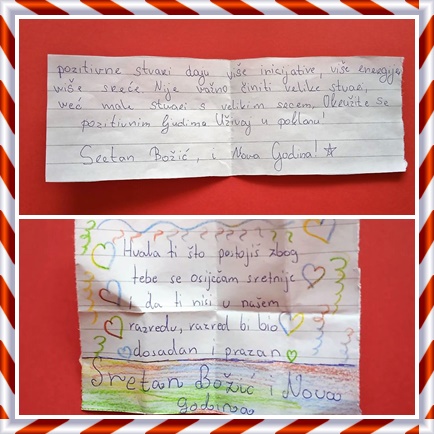 pozitivne stvari daju više inicijative, više energije
više sreće. Nije važno činiti velike stvari,
već male stvari s velikim srcem. Okružite se
pozitivnim ljudima. Uživaj u poklonu!
Sretan Božić, i Nova Godina!
Hvala ti što postojiš zbog
tebe se osijećam sretnije
i da ti nisi u našem
razredu, razred bi bio
dosadan i prazan
Sretan Božić i Nova
godina